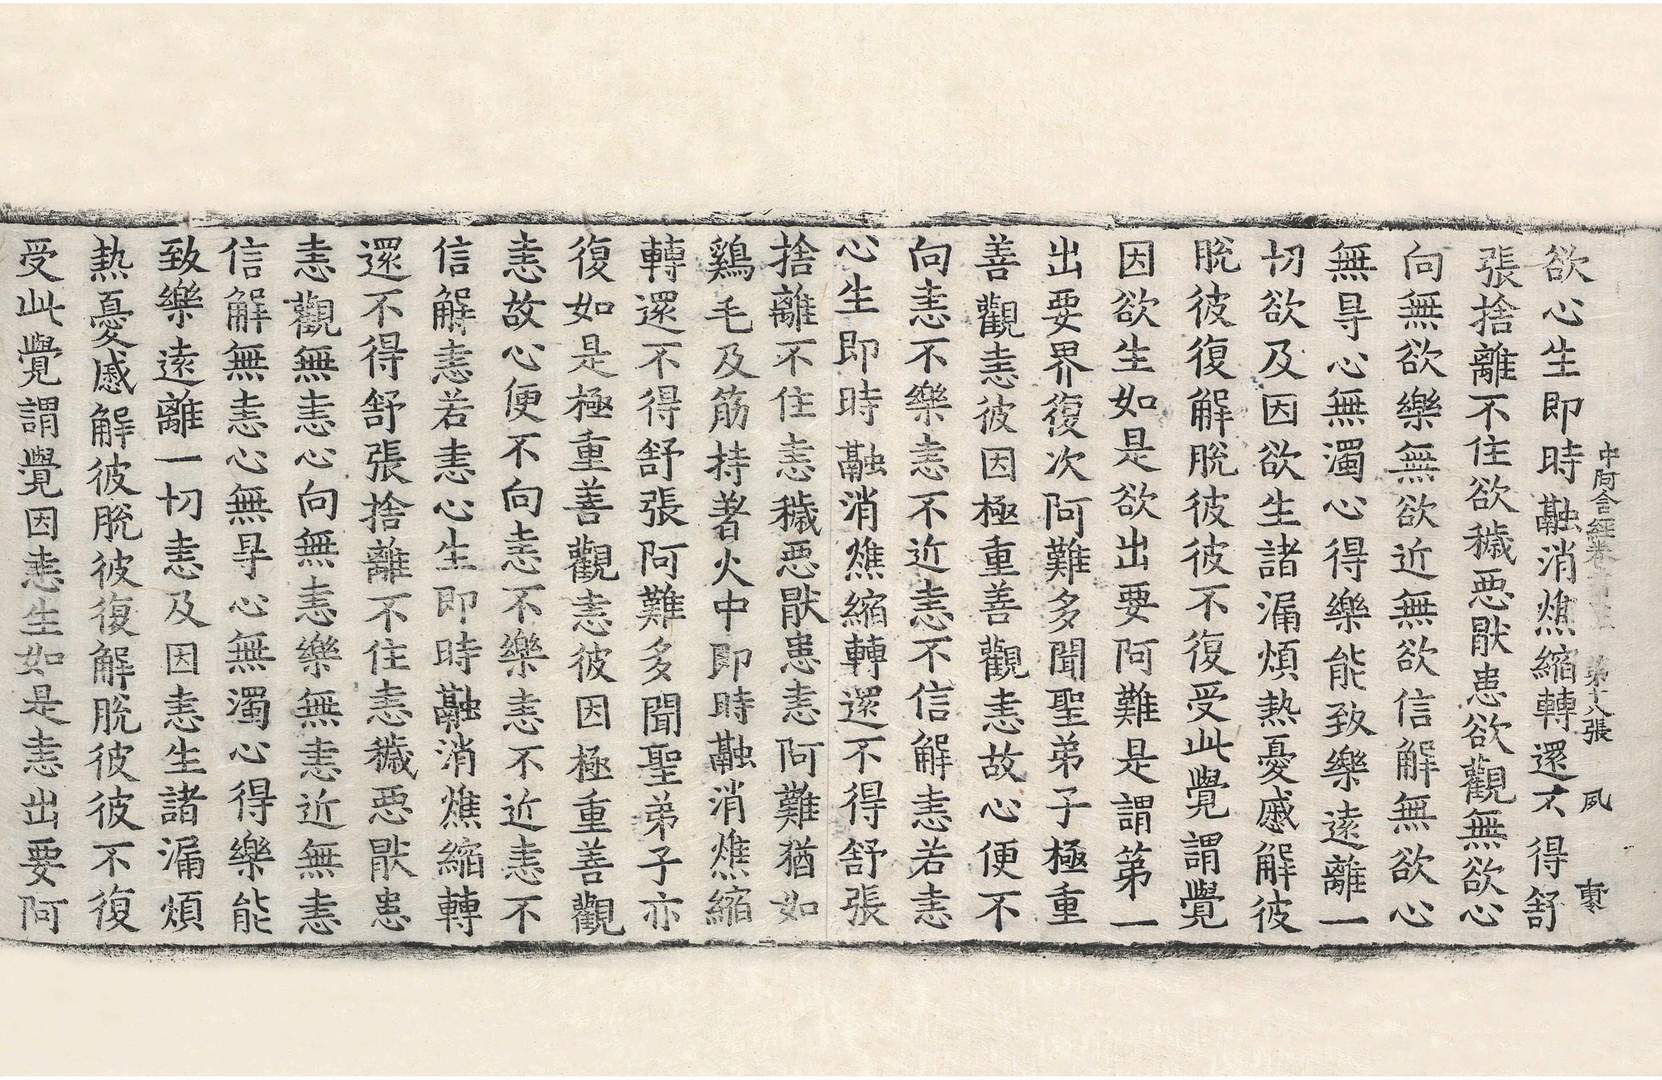 中阿含經卷 第十八張 夙
欲心生即時融消燋縮轉還不得舒
張捨離不住欲穢惡猒患欲觀無欲心
向無欲樂無欲近無欲信解無欲心
無㝵心無濁心得樂能致樂遠離一
切欲及因欲生諸漏煩熱憂慼解彼
脫彼復解脫彼彼不復受此覺謂覺
因欲生如是欲出要阿難是謂第一
出要界復次阿難多聞聖弟子極重
善觀恚彼因極重善觀恚故心便不
向恚不樂恚不近恚不信解恚若恚
心生即時融消燋縮轉還不得舒張
捨離不住恚穢惡猒患恚阿難猶如
鷄毛及筋持著火中即時融消燋縮
轉還不得舒張阿難多聞聖弟子亦
復如是極重善觀恚彼因極重善觀
恚故心便不向恚不樂恚不近恚不
信解恚若恚心生即時融消燋縮轉
還不得舒張捨離不住恚穢惡猒患
恚觀無恚心向無恚樂無恚近無恚
信解無恚心無㝵心無濁心得樂能
致樂遠離一切恚及因恚生諸漏煩
熱憂慼解彼脫彼復解脫彼彼不復
受此覺謂覺因恚生如是恚出要阿